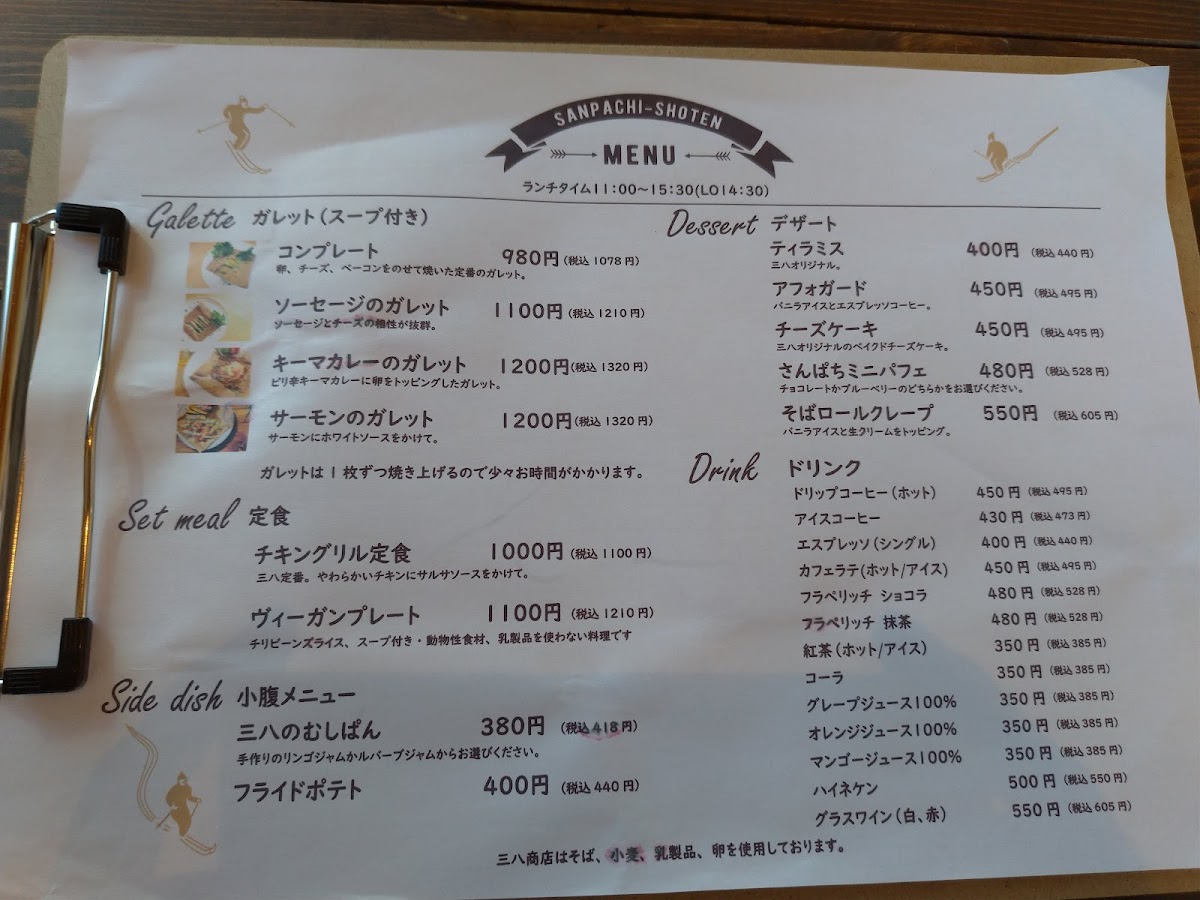 SANPACHI-SHOTEN
MENU
ランチタイム11:00~15:30(LO14:30)
Galette ガレット(スープ付き)
コンプレート 980円(税込 1078 円)
卵、チーズ、ベーコンをのせて焼いた定番のガレット。
ソーセージのガレット 1100円(税込 1210 円)
ソーセージとチーズの相性が抜群。
キーマカレーのガレット 1200円(税込 1320 円)
ピリ辛キーマカレーに卵をトッピングしたガレット。
サーモンのガレット 1200円(税込 1320 円)
サーモンにホワイトソースをかけて。
ガレットは1枚ずつ焼き上げるので少々お時間がかかります。
Set meal 定食
チキングリル定食 1000円(税込 1100 円)
三八定番。やわらかいチキンにサルサソースをかけて。
ヴィーガンプレート 1100円(税込 1210 円)
チリビーンズライス、スープ付き・動物性食材、乳製品を使わない料理です
Side dish 小腹メニュー
三八のむしぱん 380円(税込 418 円)
手作りのリンゴジャムかルバーブジャムからお選びください。
フライドポテト 400円(税込 440 円)
Dessert デザート
ティラミス 400円(税込 440 円)
三八オリジナル。
アフォガード 450円(税込 495 円)
バニラアイスとエスプレッソコーヒー。
チーズケーキ 450円(税込 495 円)
三八オリジナルのベイクドチーズケーキ。
さんぱちミニパフェ 480円(税込 528 円)
チョコレートかブルーベリーのどちらかをお選びください。
そばロールクレープ 550円(税込 605 円)
バニラアイスと生クリームをトッピング。
Drink ドリンク
ドリップコーヒー(ホット) 450円(税込 495 円)
アイスコーヒー 430円(税込 473 円)
エスプレッソ(シングル) 400円(税込 440 円)
カフェラテ(ホット/アイス) 450円(税込 495 円)
フラペリッチ ショコラ 480円(税込 528 円)
フラペリッチ 抹茶 480円(税込 528 円)
紅茶(ホット/アイス) 350円(税込 385 円)
コーラ 350円(税込 385 円)
グレープジュース100% 350円(税込 385 円)
オレンジジュース100% 350円(税込 385 円)
マンゴージュース100% 350円(税込 385 円)
ハイネケン 500円(税込 550 円)
グラスワイン(白、赤) 550円(税込 605 円)
三八商店はそば、小麦、乳製品、卵を使用しております。